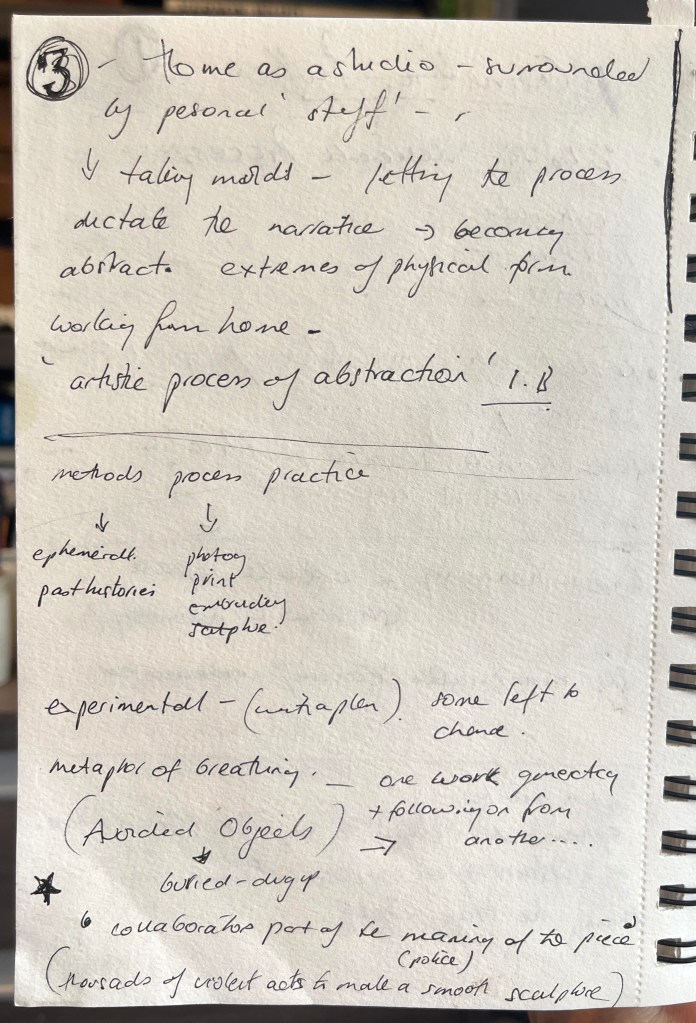 3 - Home as a studio - surrounded
by pesonal 'stuff' -
↓ taking molds - letting the process
dictate the narrative → becoming
abstract. extremes of physical form
working from home -
'artistic process of abstraction' I.B
methods process practice
↓ ↓
ephemerall. photog
past histories print
embroidery
sculpture.
experimentall - some left to
chance.
metaphor of breathing. - one work
+ following on from
(Avoided Objects) ⇒ another....
↓
★ buried - dug up
'collaborators part of the meaning of the piece'
(police)
(thousads of violent acts to make a smooth sculpture)